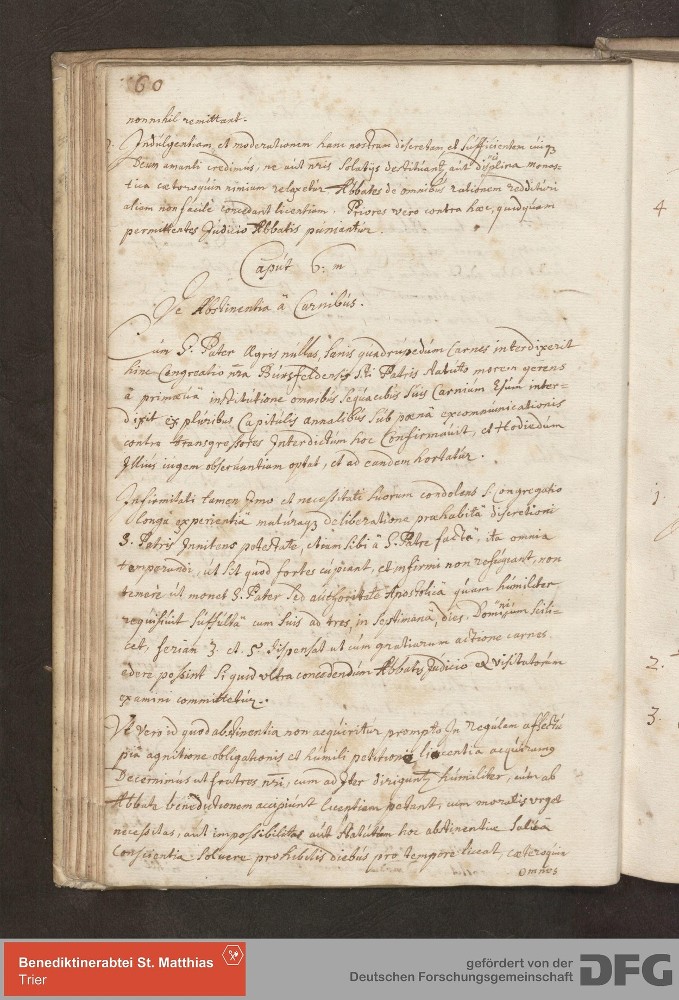 60
nonnihil remittant.
Indulgentiam, et moderationem hanc nostram discretam, et sufficientem cuiq3
Deum amanti credimus, ne aut nris solatÿs destituant, aut disciplina monas-
tica caeteroquin nimium relaxetur Abbates de omnibus rationem reddituri
aliam non facile concedant licentiam. Priores vero contra haec, quidquam
permittentes Judicio Abbatis puniantur.
Caput 6: m
De Abstinentia â Carnibus.
Cum S. Pater Aegris nullas, sanis quadrupedum Carnes interdixerit
hinc Congreatio nra Bursfeldensis Sti Petris statuto morem gerens
â primaevâ institutione omnibus sequacibus suis Carnium Esum inter-
dixit ex pluribus Capitulis annalibus sub poenâ excommunicationis
contra transgressores Interdictum hoc Confirmavit, et Hodiedum
Illius iugem observantiam optat, et ad eandem hortatur.
Infirmitati tamen Imo et necessitati suorum condolens S. Congregatio
longâ experientiâ maturaq3 deliberatione praehabitâ discretioni
S. Patris Innitens potestate, etiam sibi â S. Patre factâ, ita omnia
temperandi, ut sit quod fortes cupiant, et infirmi non refugeant, non
temere ut monet S. Pater sed authoritate Apostolicâ quam humiliter
requisivit suffultâ cum suis ad tres, in septimanâ, dies, Dominicum scili-
cet, feriam 3. et. 5. dispensat ut cum gratiarum actione carnes
edere possint si quid ultra concedendum Abbatis Judicio et visitatorum
examini committetur.
Ut vero id quod abstinentia non aequiritur prompto In regulam affectu
piâ agnitione obligationis et humili petitione licentiâ aequiramus
Decernimus ut fratres nri, cum ad Iter diriguntur humiliter, cum ab
Abbate benedictionem accipiunt licentiam petant, cum moralis urget
necessitas, aut impossibilitas aut statutum hoc abstinentiae salvâ
Conscientiâ solvere prohibitis diebus pro tempore liceat, caeteroquin
omnes
4
1.
2.
3.
Benediktinerabtei St. Matthias
Trier
gefördert von der
Deutschen Forschungsgemeinschaft
DFG